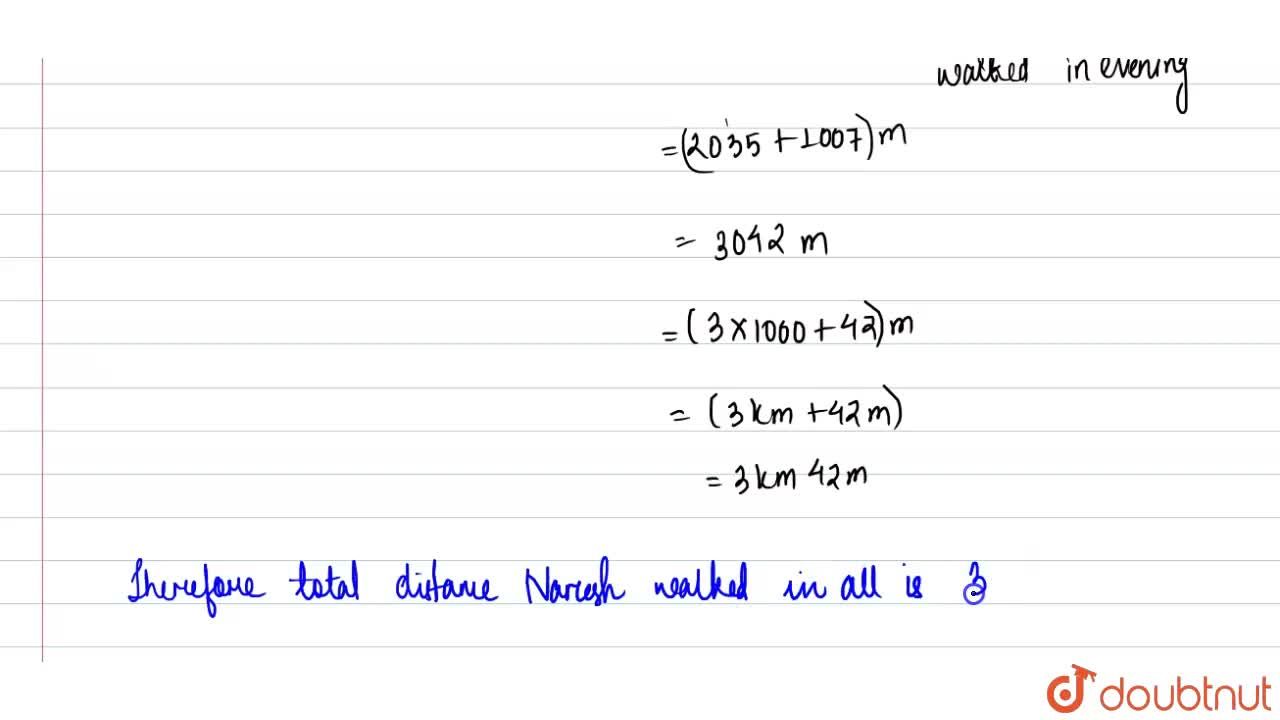 walked in evening
= (2035 + 1007) m
= 3042 m
= (3 × 1000 + 42) m
= (3 km + 42 m)
= 3 km 42 m
Therefore total distance Naresh walked in all is 3
doubtnut